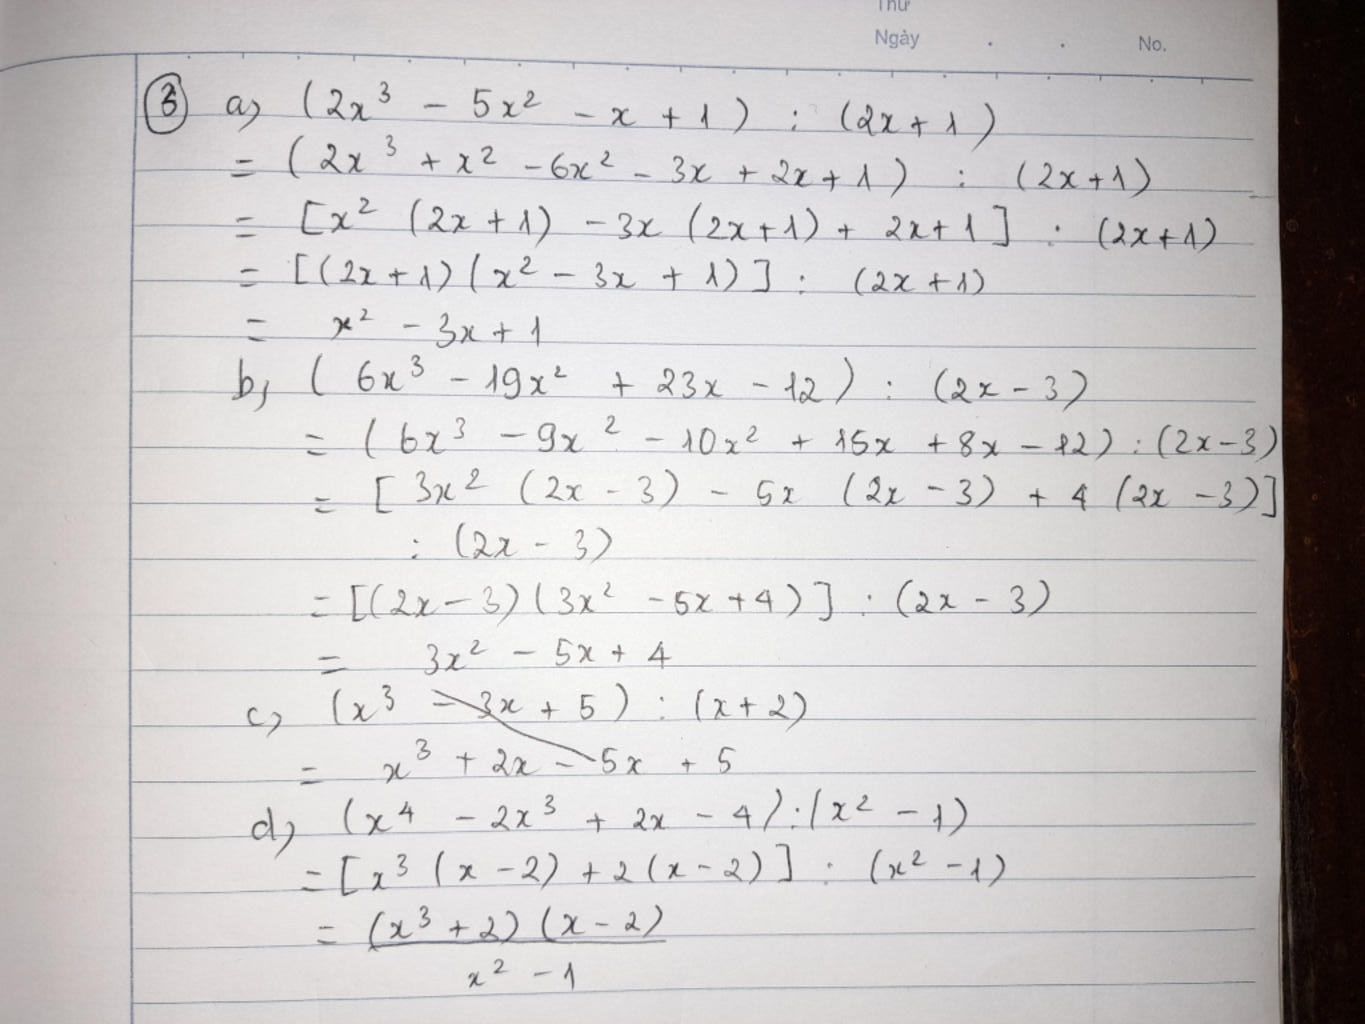 Thứ
Ngày . . No.
③ a) (2x³ - 5x² - x + 1) : (2x + 1)
= (2x³ + x² - 6x² - 3x + 2x + 1) : (2x+1)
= [x² (2x + 1) - 3x (2x+1) + 2x+1] : (2x+1)
= [(2x+1)(x² - 3x + 1)] : (2x +1)
= x² - 3x + 1
b) (6x³ - 19x² + 23x - 12) : (2x - 3)
= (6x³ - 9x² - 10x² + 15x + 8x - 12) : (2x-3)
= [3x² (2x - 3) - 5x (2x - 3) + 4 (2x - 3)]
: (2x - 3)
= [(2x - 3)(3x² - 5x + 4)] : (2x - 3)
= 3x² - 5x + 4
c) (x³ - 3x + 5) : (x + 2)
= x³ + 2x - 5x + 5
d) (x⁴ - 2x³ + 2x - 4) : (x² - 1)
= [x³ (x - 2) + 2(x - 2)] : (x² - 1)
= (x³ + 2) (x - 2)
x² - 1